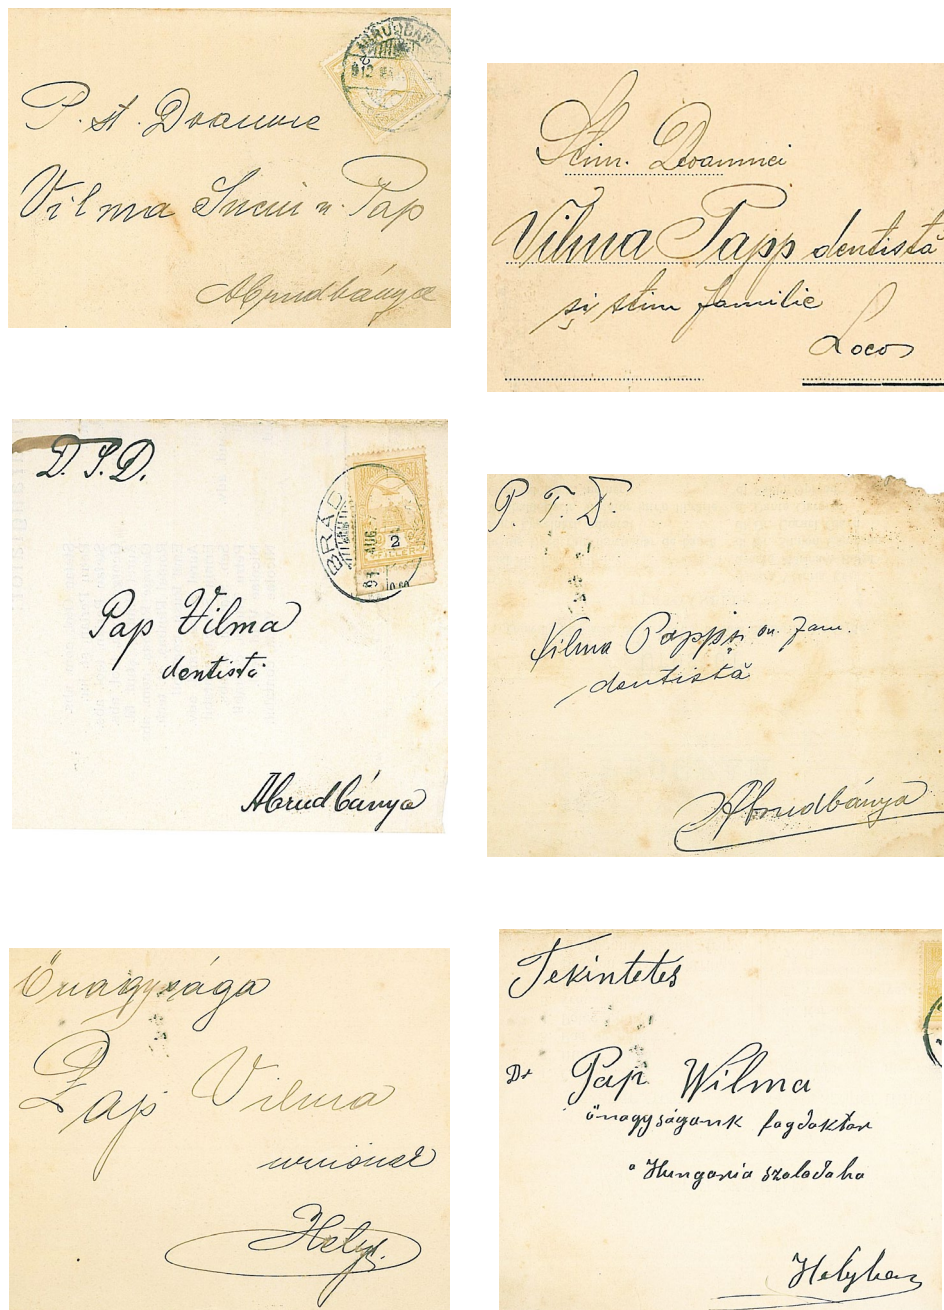 ABRUDBÁNYA
912
P. st. Doamne
Vilma Suciu n. Pap
Abrudbánya
Stim. Doamnei
Vilma Papp dentistă
și stim familie
Loco
D. S. D.
BRÁD
AUG.
2
FILLÉR
Pap Vilma
dentistă
Abrudbánya
P. T. D.
Vilma Papp și on. fam.
dentistă
Abrudbánya
Önagysága
Pap Vilma
urnőnek
Helyt.
Tekintetes
Dr Pap Wilma
önagyságank fogdoktor
a Hungaria szalodaba
Helyben